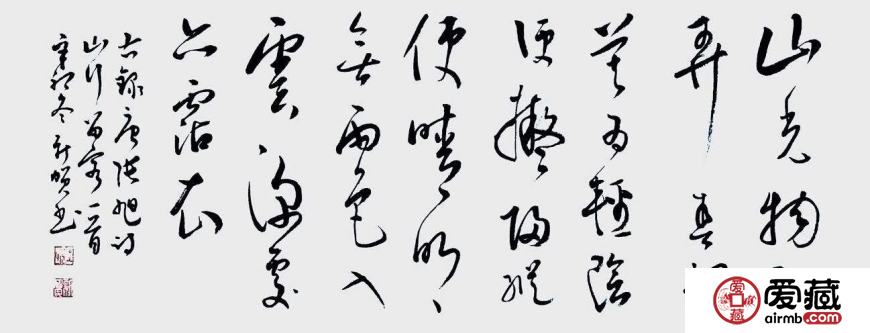 山光物
弄春
莫為輕陰
便擬歸縱
使晴明
無雨色入
雲深處
亦霑衣
右錄唐張旭詩
山行留客一首
辛卯冬書
爱藏
airmb.com